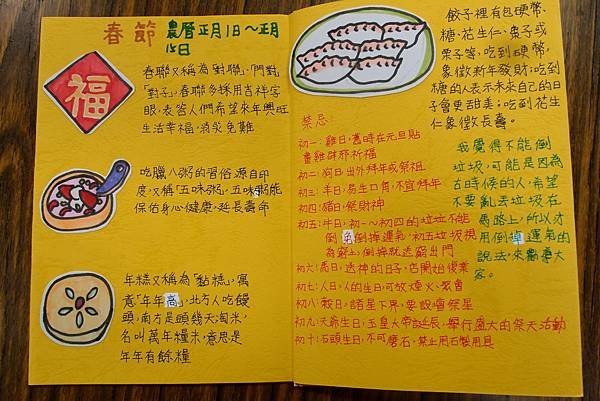 春節 農曆正月1日~正月
15日
福
春聯又稱為「對聯」、「門對」
「對子」,春聯多採用吉祥字
眼,表答人們希望來年興旺
生活幸福,消災免難
吃臘八粥的習俗源自印
度,又稱「五味粥」,五味粥能
保佑身心健康,延長壽命
年糕又稱為「黏糕」,寓
意「年年高」,北方人吃饅
頭,南方是頭幾天淘米,
名叫萬年糧米,意思是
年年有餘糧
餃子裡有包硬幣、
糖、花生仁、棗子或
栗子等,吃到硬幣,
象徵新年發財;吃到
糖的人表示未來自己的日
子會更甜美;吃到花生
仁象徵長壽。
禁忌:
初一:雞日,舊時在元旦貼
畫雞辟邪祈福
初二:狗日,出外拜年或祭祖
初三:羊日,易生口角,不宜拜年
初四:豬日,祭財神
初五:牛日,初一~初四的垃圾不能
倒,免倒掉運氣,初五垃圾視
為窮土,倒掉就送窮出門
初六:馬日,送神的日子,店開始復業
初七:人日,人的生日,可放煙火、聚會
初八:穀日,諸星下界,要設會祭星
初九:天爺生日,玉皇大帝誕辰,舉行盛大的祭天活動
初十:石頭生日,不可磨石,禁止用石製用具
我覺得不能倒
垃圾,可能是因為
古時候的人,希望
不要亂丟垃圾在
馬路上,所以才
用倒掉運氣的
說法,來勸導大
家。